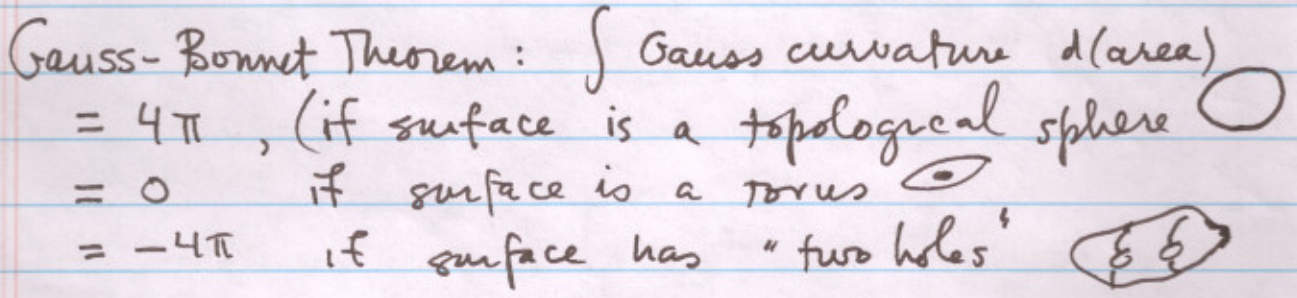 Gauss-Bonnet Theorem: ∫ Gauss curvature d(area)
= 4π, (if surface is a topological sphere
= 0 if surface is a torus
= -4π if surface has "two holes"